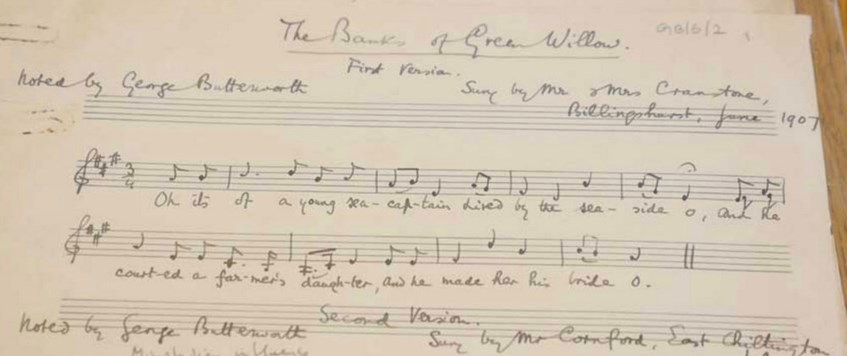 The Banks of Green Willow. GB/6/2
First Version.
Noted by George Butterworth Sung by Mr & Mrs Cranstone,
Billingshurst, June 1907
3/4
Oh it's of a young sea-cap-tain lived by the sea-side o, and he
court-ed a far-mer's daugh-ter, and he made her his bride o.
Second Version.
Noted by George Butterworth Sung by Mr Cornford, East Chiltington